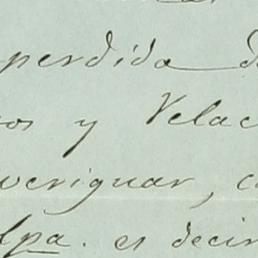 perdida d
os y Velac
veriguar, c
lpa. es decir